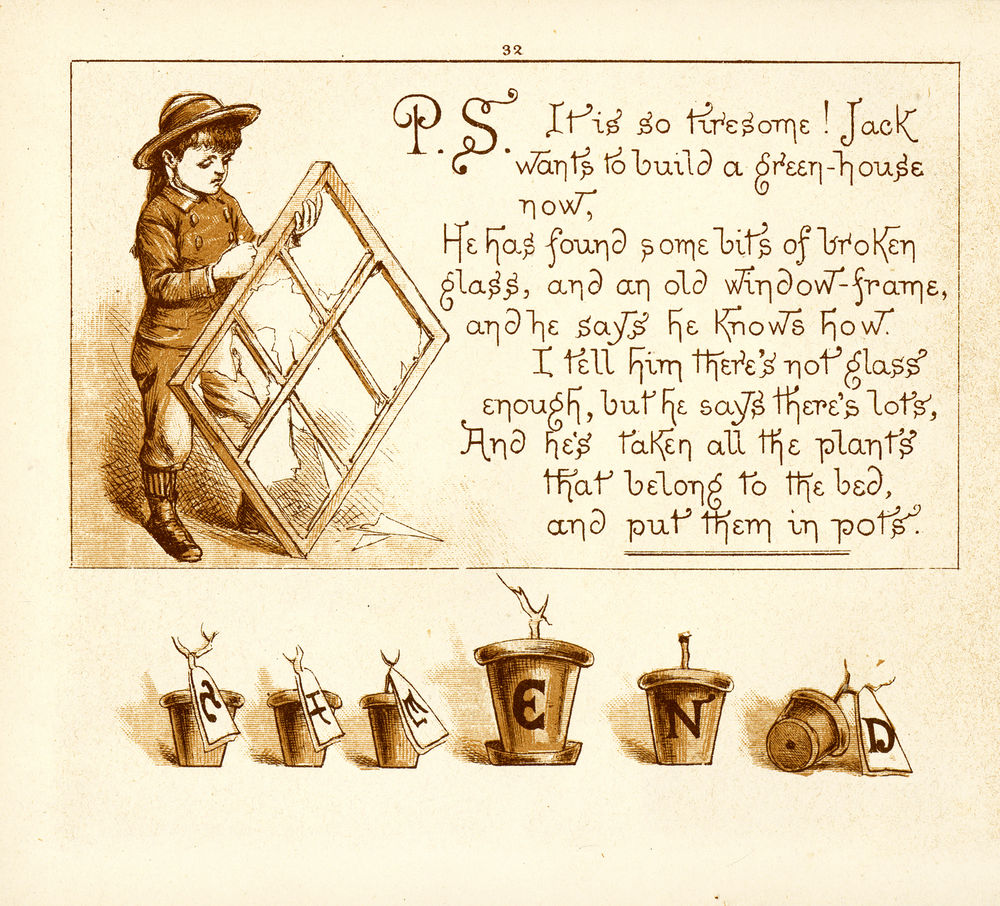 32
P.S. It is so tiresome! Jack
wants to build a green-house
now,
He has found some bits of broken
glass, and an old window-frame,
and he says he knows how.
I tell him there's not glass
enough, but he says there's lots,
And he's taken all the plants
that belong to the bed,
and put them in pots.
THE END